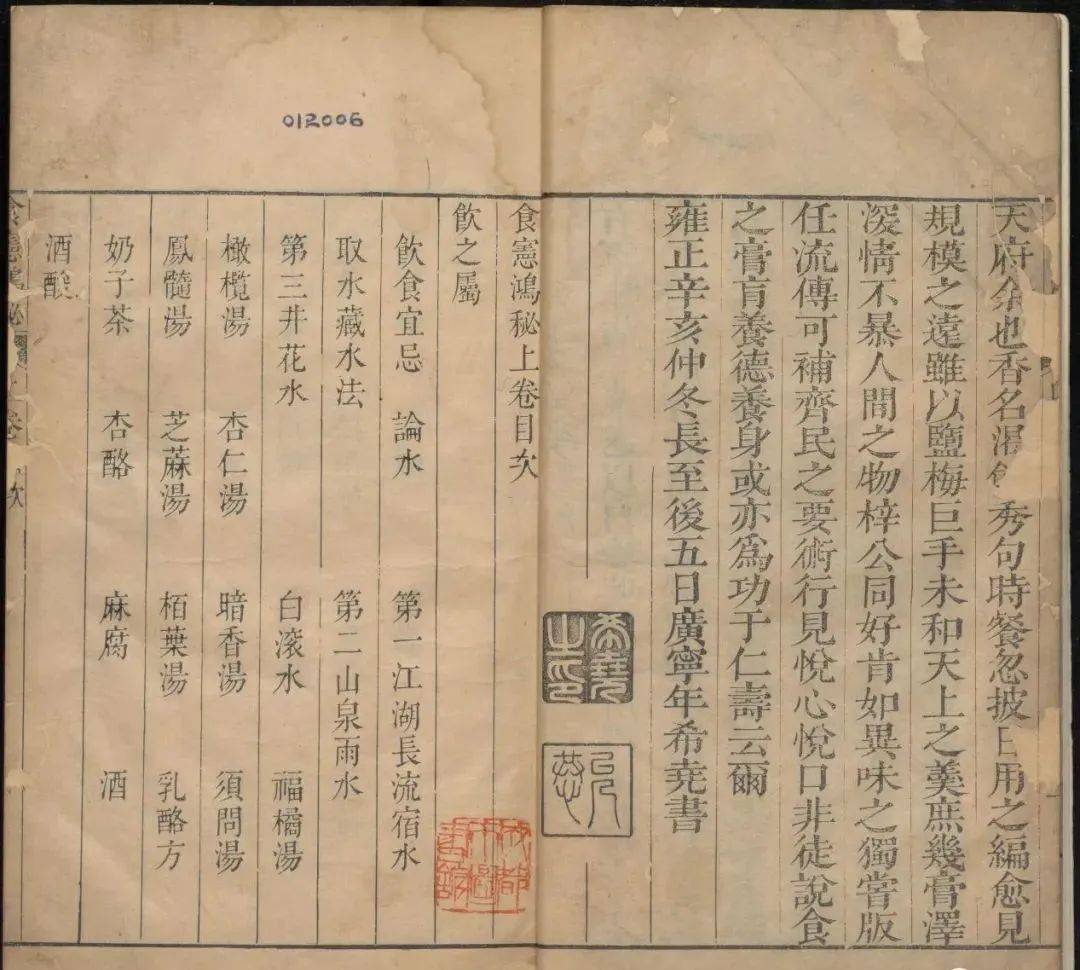 天府余也香名㵐 秀句時餐忽披日用之編愈見
規模之遠雖以鹽梅巨手未和天上之羹庶幾膏澤
深情不暴人間之物梓公同好肯如異味之獨嘗版
任流傳可補齊民之要術行見悅心悅口非徒說食
之膏肓養德養身或亦爲功于仁壽云爾
雍正辛亥仲冬長至後五日廣寧年希堯書
希堯之印
成都
食憲鴻秘上卷目次
飲之屬
飲食宜忌 論水 第一江湖長流宿水
取水藏水法 第二山泉雨水
第三井花水 白滚水 福橘湯
橄欖湯 杏仁湯 暗香湯 須問湯
鳳髓湯 芝蔴湯 栢葉湯 乳酪方
奶子茶 杏酪 麻腐 酒
酒酸
食憲鴻秘 卷 次
012006